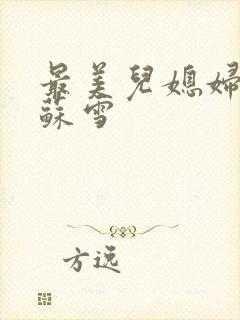 最美兒媳婦
蘇雪
方逸